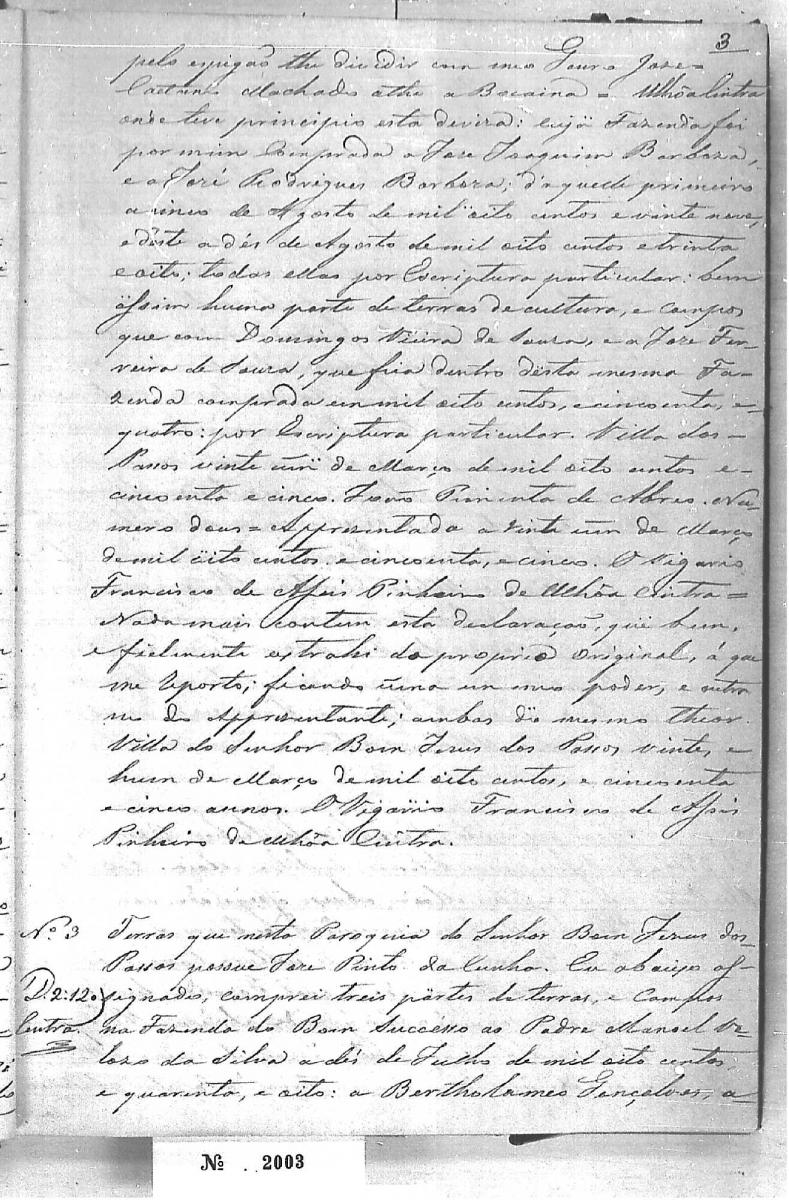 3
pelo espigão the dividir com meo Genro Jose
Caetano Machado athe a Bocaina = Ulhôa Cintra
onde teve principio esta deviza: cujä Fazenda foi
por mim Comprada a Jose Joaquim Barboza,
e a José Rodrigues Barboza; d'aquelle primeiro
a cinco de Agosto de mil oito centos e vinte nove,
e dëste a dés de Agosto de mil oito centos e trinta
e oito; todas ellas por Escriptura particular: bem
assim huma parte de terras de cultura, e campos
que com Domingos Viëira de Souza, e a Joze Fer-
reira de Souza, que fica dentro dësta mesma Fa-
zenda comprada em mil oito centos, e cincoenta, e-
quatro: por Escriptura particular. Villa dos-
Passos vinte üm de Março de mil oito centos e-
cincoenta e cinco. João Pimenta de Abreo. Nu-
mero dous = Appresentada a vinte üm de Março
de mil öito centos e cincoenta, e cinco. O Vigario
Francisco de Assis Pinheiro de Ulhôa Cintra =
Nada mais contem esta declaração, quë bem,
e fielmente extrahi do proprio original, á que
me reporto; ficando üma em meo poder, e outra
no do Appresentante; ambas dö mesmo theor.
Villa do Senhor Bom Jezus dos Passos vinte, e
hum de Março de mil öito centos, e cincoenta
e cinco annos. O Vigärio Francisco de Assis
Pinheiro de Ulhôa Cintra.
Nº 3 Terras que nesta Paroquia do Senhor Bom Jezus dos-
Passos possue Jose Pinto da Cunha. Eu abaixo as-
D. 2:120 signado, comprei treis pärtes de terras, e Campos
Cintra. na Fazenda do Bom Successo ao Padre Manoel Ve-
lozo da Silva a dés de Julho de mil oito centos,
e quarenta, e oito: a Bertholameo Gonçalves, a-
Nº 2003